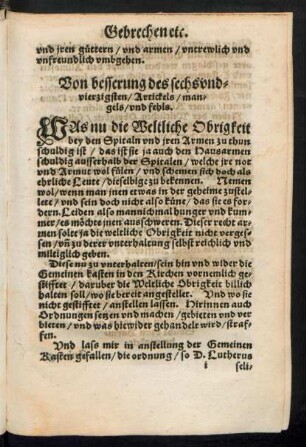 Gebrechen etc.
vnd jren güttern / vnd armen / vntrewlich vnd
vnfreundlich vmbgehen.
Von besserung des sechsvnd-
vierzigsten / Artickels / man-
gels / vnd fehls.
WAs nu die Weltliche Obrigkeit
bey den Spitaln vnd jren Armen zu thun
schuldig ist / das ist sie ja auch den Hausarmen
schuldig ausserhalb der Spitalen / welche jre not
vnd Armut wol fülen / vnd schemen sich doch als
ehrliche Leute / dieselbige zu bekennen. Nemen
wol / wenn man jnen etwas in der geheime zustel-
lete / vnd sein doch nicht also küne / das sie es for-
dern. Leiden also mannichmal hunger vnd kum-
mer / es möchts jnen ausschweren. Dieser recht ar-
men solte ja die weltliche Obrigkeit nicht verges-
sen / vñ zu derer vnterhaltung selbst reichlich vnd
milteglich geben.
Diese nu zu vnterhalten / sein hin vnd wider die
Gemeinen kasten in den Kirchen vornemlich ge-
stifftet / daruber die Weltliche Obrigkeit billich
halten soll / wo sie bereit angestellet. Vnd wo sie
nicht gestifftet / anstellen lassen. Hirinnen auch
Ordnungen setzen vnd machen / gebieten vnd ver
bieten / vnd was hiewider gehandelt wird / straf-
fen.
Vnd lass mir in anstellung der Gemeinen
Kasten gefallen / die ordnung / so D. Lutherus
i
seli-